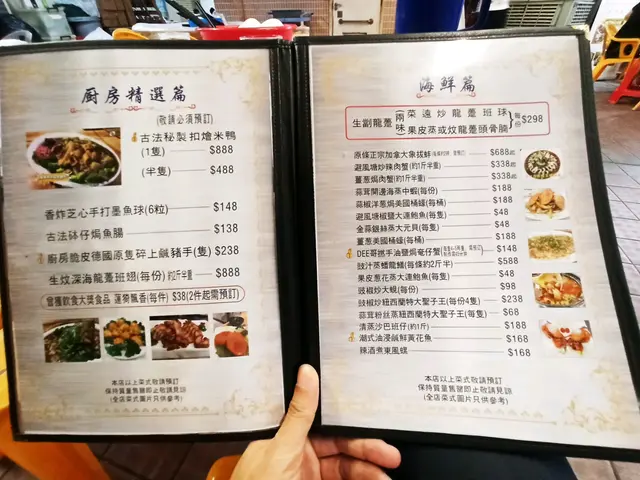 廚房精選篇
(敬請必須預訂)
古法秘製扣燴米鴨
(1隻) $888
(半隻) $488
香炸芝心手打墨魚球(6粒) $148
古法砵仔焗魚腸 $138
廚房脆皮德國原隻碎上鹹豬手(隻) $238
生炆深海龍躉班翅(每份)約2斤半重 $888
曾獲飲食大獎食品 蓮蓉飄香(每件) $38(2件起需預訂)
本店以上菜式敬請預訂
保持質量售罄即止敬請見諒
(全店菜式圖片只供參考)
海鮮篇
生劏龍躉兩味 菜遠炒龍躉班球
果皮蒸或炆龍躉頭骨腩 每份$298
原條正宗加拿大象拔蚌 $688起
避風塘炒辣肉蟹(約1斤半重) $338起
薑葱焗肉蟹(約1斤半重) $338起
蒜茸開邊海蒸中蝦(每份) $188
蒜椒洋葱美國桶蠔(每桶) $188
避風塘椒鹽大連鮑魚(每隻) $48
金蒜銀絲蒸大元貝(每隻) $48
薑葱美國桶蠔(每桶) $188
DEE哥撚手油鹽焗奄仔蟹 $148
豉汁蒸蟠龍鱔(每條約2斤半) $588
果皮葱花蒸大連鮑魚(每隻) $48
豉椒炒大蜆(每份) $98
豉椒炒紐西蘭特大聖子王(每份4隻) $238
蒜茸粉絲蒸紐西蘭特大聖子王(每隻) $68
清蒸沙巴班仔(約1斤) $188
潮式油浸鹹鮮黃花魚 $168
辣酒煮東風螺 $168
本店以上菜式敬請預訂
保持質量售罄即止敬請見諒
(全店菜式圖片只供參考)